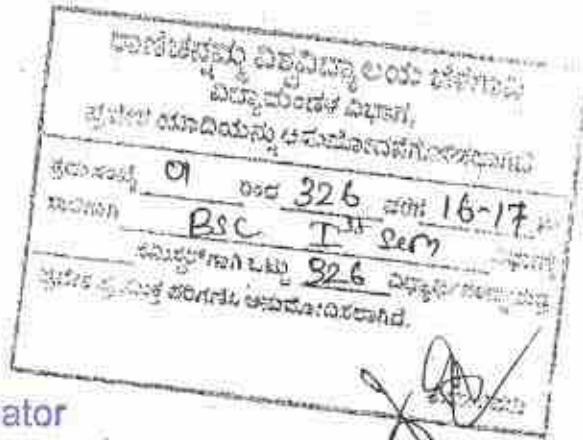 ರಾಣಿಚನ್ನಮ್ಮ ವಿಶ್ವವಿದ್ಯಾಲಯ ಬೆಳಗಾವಿ
ವಿದ್ಯಾಮಂಡಳ ವಿಭಾಗ,
ಪ್ರವೇಶ ಯಾದಿಯನ್ನು ಅನುಮೋದನೆಗೊಳಿಸಲಾಗಿದೆ
ಕ್ರಮ ಸಂಖ್ಯೆ 01 ರಿಂದ 326 ವರೆಗೆ 16-17
ಸಾಲಿಗಾಗಿ BSC Ist Sem
ಸೆಮಿಸ್ಟರ್‌ಗಾಗಿ ಒಟ್ಟು 326
ಪ್ರವೇಶ ಅನುಮೋದಿಸಲಾಗಿದೆ.
ator